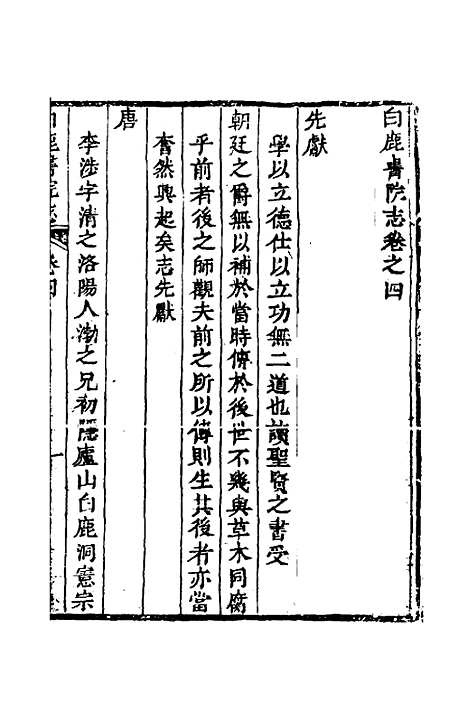 白鹿書院志卷之四
先獻
學以立德仕以立功無二道也讀聖賢之書受
朝廷之爵無以補於當時俾於後世不幾與草木同腐
乎前者後之師觀夫前之所以傳則生其後者亦當
奮然興起矣志先獻
唐
李涉字清之洛陽人渤之兄初隱廬山白鹿洞憲宗
白鹿書院志
卷四